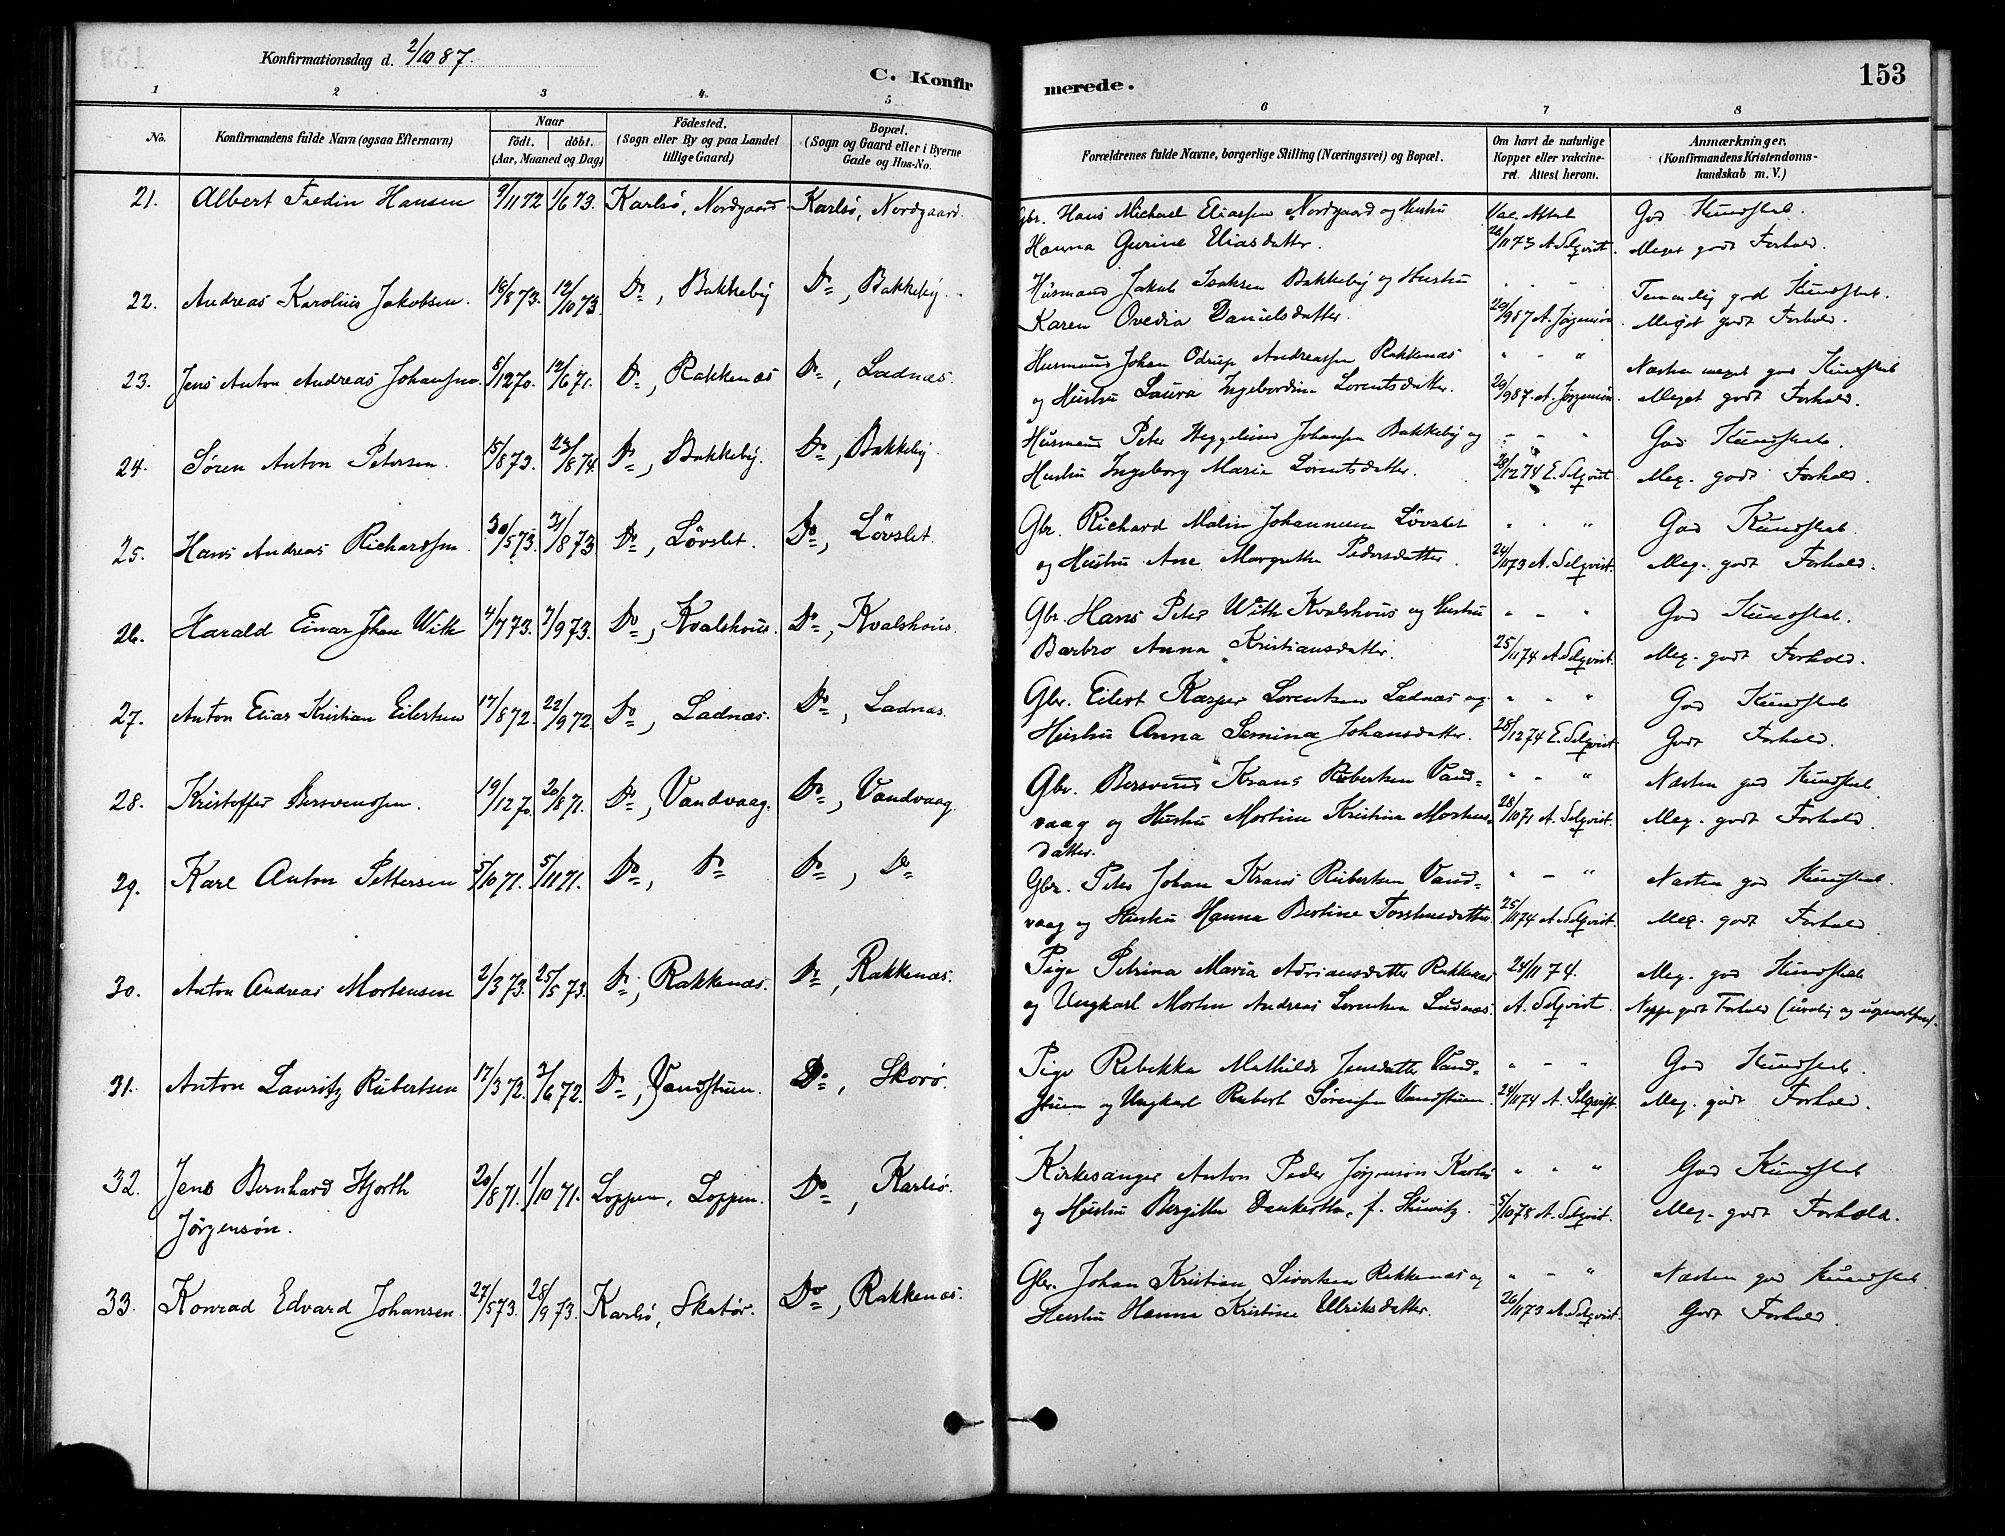 Konfirmationsdag d. 2/10 87.
C. Konfirmerede.
153
1 2 3 4 5 6 7 8
No.
Konfirmandens fulde Navn (ogsaa Efternavn)
Naar
födt. döbt.
(Aar, Maaned og Dag)
Födested.
(Sogn eller By og paa Landet
tillige Gaard)
Bopæl.
(Sogn og Gaard eller i Byerne
Gade og Hus-No.
Forældrenes fulde Navne, borgerlige Stilling (Næringsvei) og Bopæl.
Om havt de naturlige
Kopper eller vakcine-
ret. Attest herom.
Anmærkninger.
(Konfirmandens Kristendoms-
kundskab m. V.)
21. Albert Fredin Hansen 9/11 72 1/6 73. Karlsö, Nordgaard. Karlsö, Nordgaard. Gbr. Hans Michael Eliassen Nordgaard og Hustru Vac. Attest God Kundskab.
Hanna Gurine Eliasdatter. 26/11 73 A. Selqvist. Meget godt Forhold.
22. Andreas Karolius Jakobsen. 18/8 73. 12/10 73. Do, Bakkeby Do, Bakkeby. Husmand Jakob Isaksen Bakkeby og Hustru " - " Temmelig god Kundskab.
Karen Ovedia Danielsdatter. 20/9 87 A. Jörgensön. Meget godt Forhold.
23. Jens Anton Andreas Johansen. 8/12 70. 12/6 71. Do, Rakkenæs Do, Ladnæs. Husmand Johan Odrup Andreassen Rakkenæs " - " Næsten meget god Kundskab
og Hustru Laura Ingebordine Lorentsdatter. 20/9 87. A. Jörgensön. Meget godt Forhold.
24. Sören Anton Petersen. 15/8 73. 23/8 74. Do, Bakkeby. Do, Bakkeby. Husmand Peter Heggelund Johansen Bakkeby og " - " God Kundskab.
Hustru Ingeborg Marie Lorentsdatter. 28/12 74 E. Selqvist. Meg. godt Forhold.
25. Hans Andreas Richardsen 30/5 73. 31/8 73 Do, Lövslet. Do, Lövslet. Gbr. Richard Malin Johannesen Lövslet " - " God Kundskab.
og Hustru Ane Margrethe Pedersdatter. 24/11 73 A. Selqvist. Meg. godt Forhold.
26. Harald Einar Johan With 4/7 73. 7/9 73. Do, Kvalshous. Do, Kvalshous. Gbr. Hans Peter With Kvalshous og Hustru " - " God Kundskab.
Barbro Anna Kristiansdatter. 25/11 74 A. Selqvist. Meg. godt Forhold.
27. Anton Elias Kristian Eilertsen 17/8 72. 22/9 72. Do, Ladnæs. Do, Ladnæs. Gbr. Eilert Kasper Lorentsen Ladnæs og " - " God Kundskab
Hustru Anna Semina Johansdatter. 28/12 74 E. Selqvist. Godt Forhold.
28. Kristoffer Bersvendsen. 19/12 70. 20/8 71. Do, Vandvaag. Do, Vandvaag. Gbr. Bersvend Krans Rubertsen Vand- " - " Næsten god Kundskab.
vaag og Hustru Mortine Kristina Mortens- 28/10 71 A. Selqvist. Meg. godt Forhold.
datter.
29. Karl Anton Pettersen 5/10 71. 5/11 71. Do, Do Do, Do Gbr. Peter Johan Krans Rubertsen Vand- " - " Næsten god Kundskab.
vaag og Hustru Hanna Bertine Torstensdatter. 25/11 74 A. Selqvist. Meg. godt Forhold.
30. Anton Andreas Mortensen 2/3 73. 25/5 73. Do, Rakkenæs. Do, Rakkenæs. Pige Petrina Maria Adriansdatter Rakkenæs 24/11 74. Meg. god Kundskab
og Ungkarl Morten Andreas Lorentsen Ladnæs. A. Selqvist. Neppe godt Forhold (urolig og uopmærksom).
31. Anton Lauritz Rubertsen 17/3 72. 2/6 72. Do, Vandstuen. Do, Skorö. Pige Rebekka Mathilde Jensdatter Vand- " - " God Kundskab.
stuen og Ungkarl Rubert Sörensen Vandstuen 24/11 74 A. Selqvist. Meg. godt Forhold.
32. Jens Bernhard Hjorth 20/8 71. 1/10 71. Loppen, Loppen. Do, Karlsö. Kirkesanger Anton Peder Jörgensön Karlsö " " " God Kundskab
Jörgensön. og Hustru Bergitta Dankertha, f. Stuwitz. 5/10 78 A. Selqvist. Meg. godt Forhold.
33. Konrad Edvard Johansen. 27/5 73. 28/9 73. Karlsö, Skatör. Do, Rakkenæs. Gbr. Johan Kristian Sivertsen Rakkenæs og " - " Næsten god Kundskab
Hustru Hanna Kristine Ulriksdatter. 26/11 73 A. Selqvist. Godt Forhold.